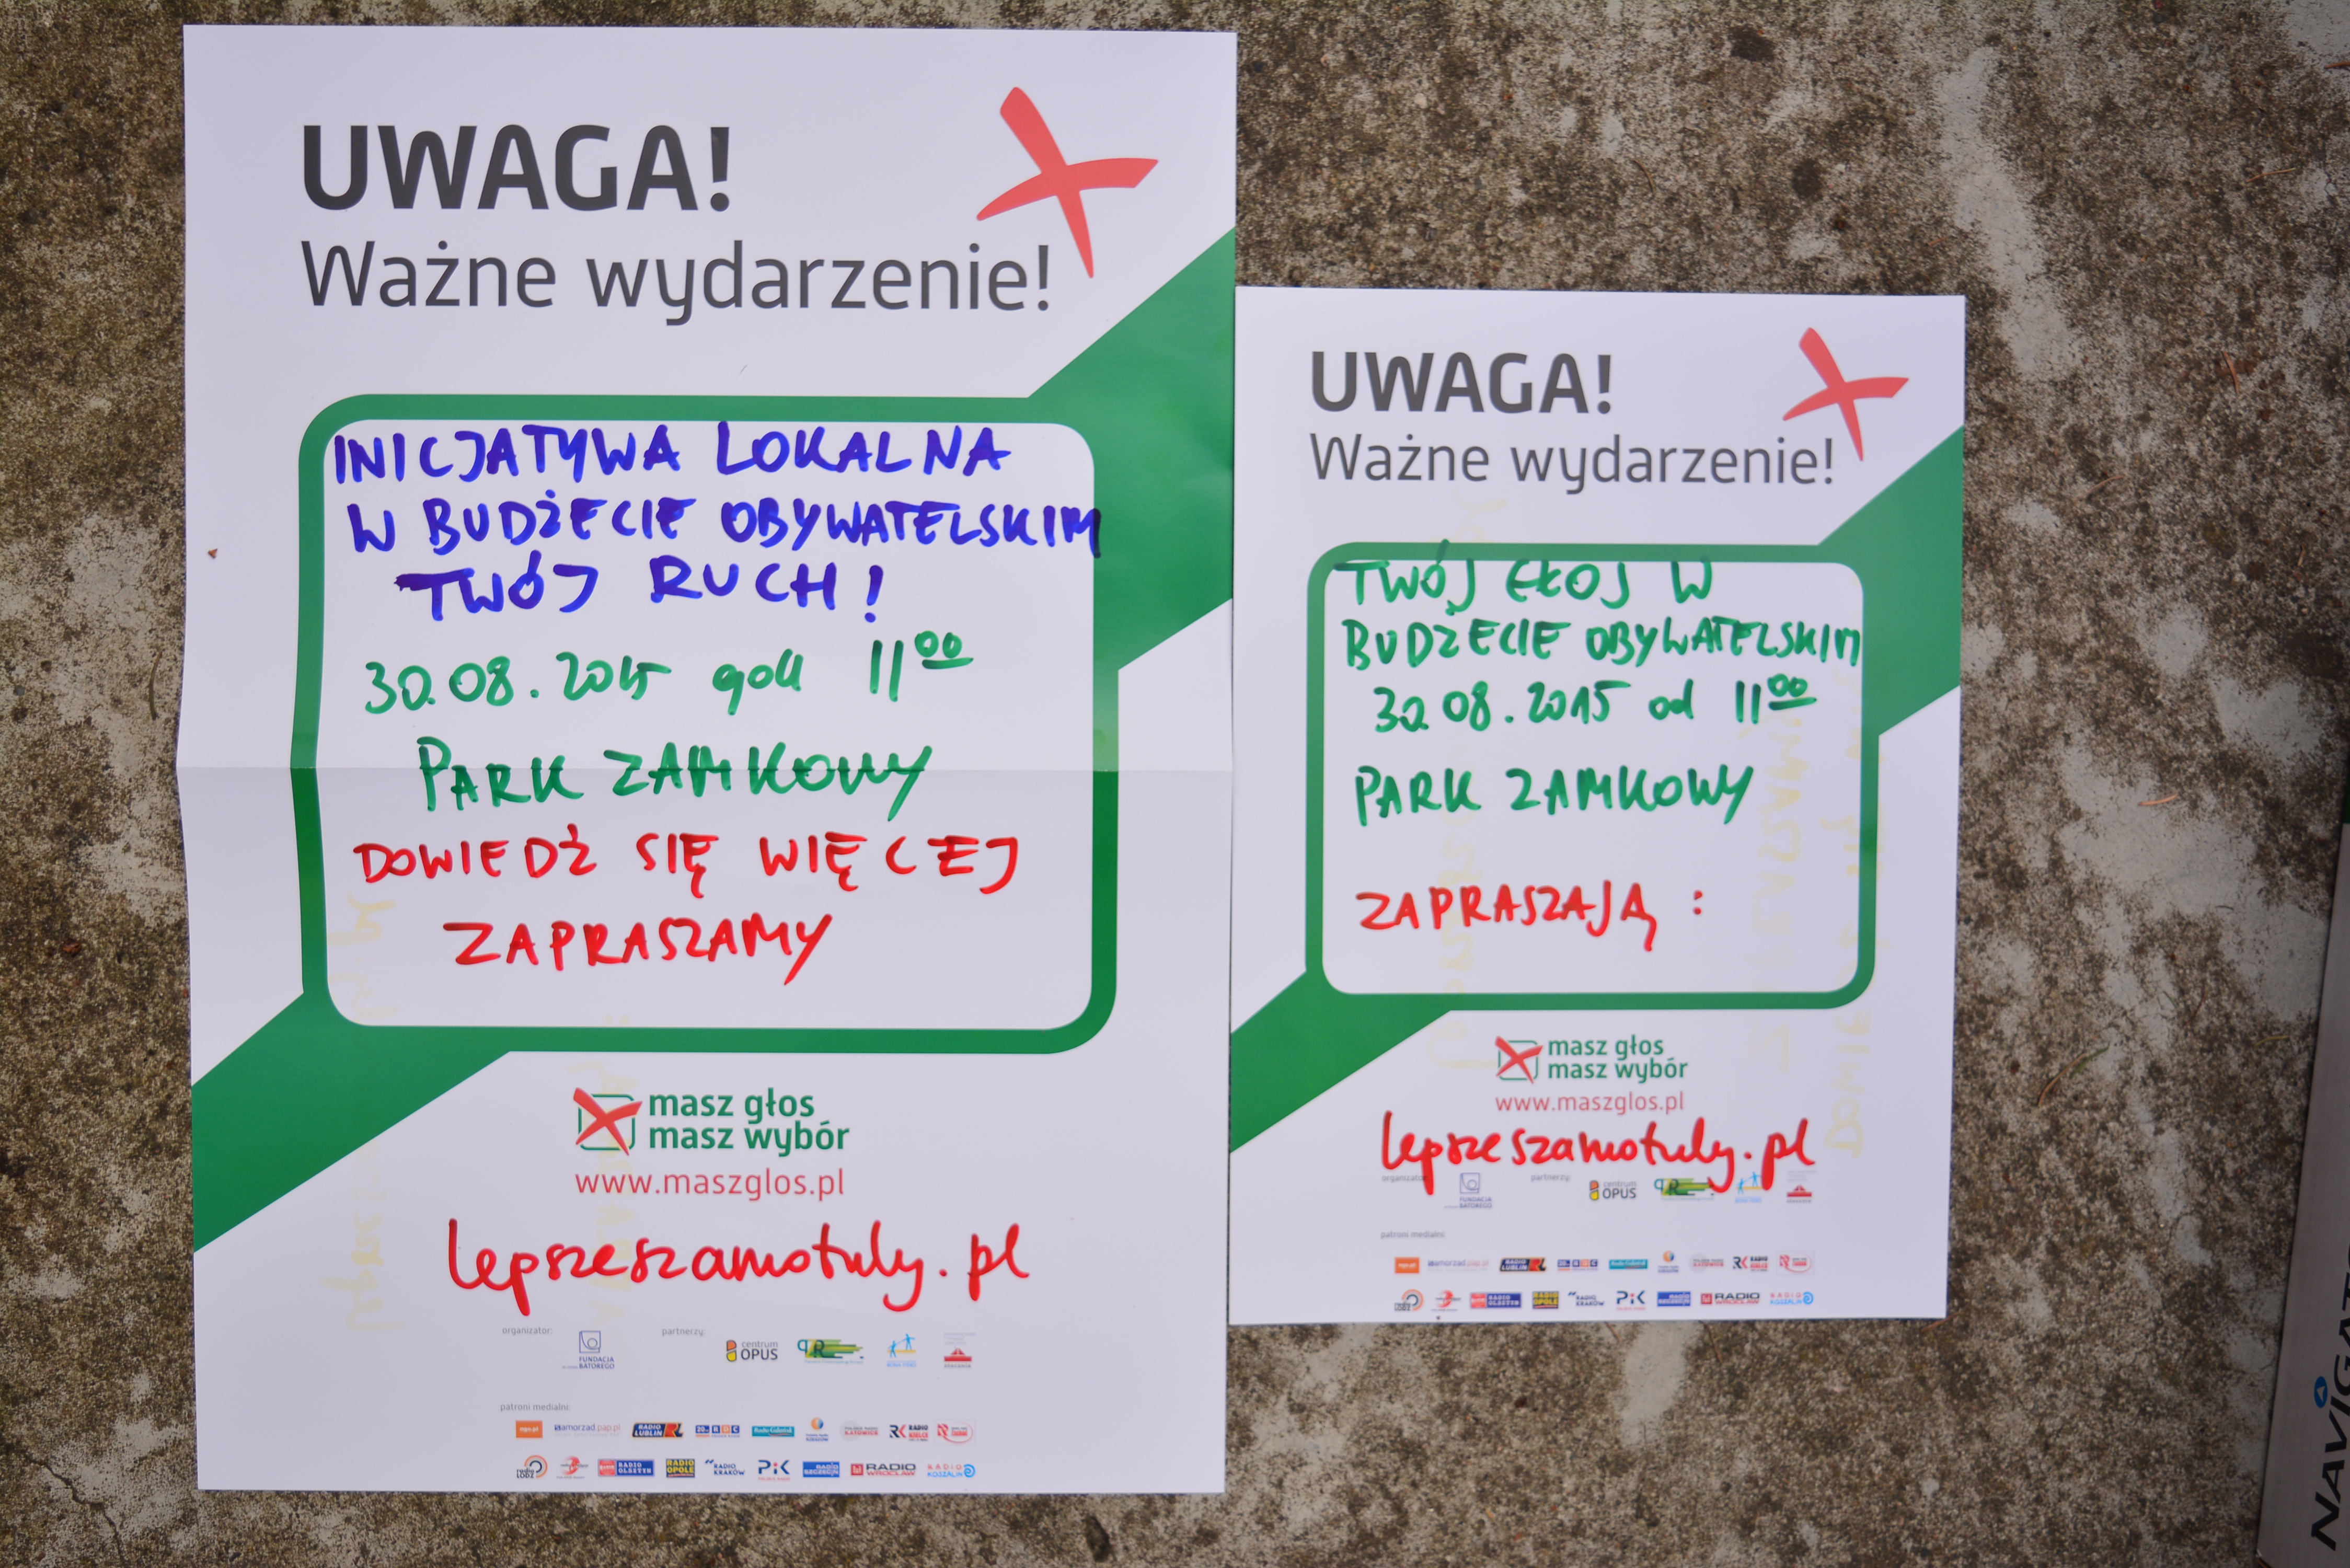 UWAGA!
Ważne wydarzenie!
INICJATYWA LOKALNA
W BUDŻECIE OBYWATELSKIM
TWÓJ RUCH!
30.08.2015 godz 11⁰⁰
PARK ZAMKOWY
DOWIEDŹ SIĘ WIĘCEJ
ZAPRASZAMY
masz głos
masz wybór
www.maszglos.pl
lepszeszamotuly.pl
organizator:
partnerzy:
FUNDACJA
BATOREGO
centrum
OPUS
patroni medialni:
ngo.pl samorzad.pap.pl RADIO LUBLIN RDC RK RADIO KIELCE
RADIO OLSZTYN RADIO OPOLE RADIO KRAKÓW PiK RADIO SZCZECIN RADIO WROCŁAW RADIO KOSZALIN
UWAGA!
Ważne wydarzenie!
TWÓJ GŁOS W
BUDŻECIE OBYWATELSKIM
30.08.2015 od 11⁰⁰
PARK ZAMKOWY
ZAPRASZAJĄ:
masz głos
masz wybór
www.maszglos.pl
lepszeszamotuly.pl
organizator:
partnerzy:
FUNDACJA
BATOREGO
centrum
OPUS
patroni medialni:
samorzad.pap.pl RADIO LUBLIN RDC RK RADIO KIELCE
RADIO OLSZTYN RADIO OPOLE RADIO KRAKÓW PiK RADIO SZCZECIN RADIO WROCŁAW RADIO KOSZALIN